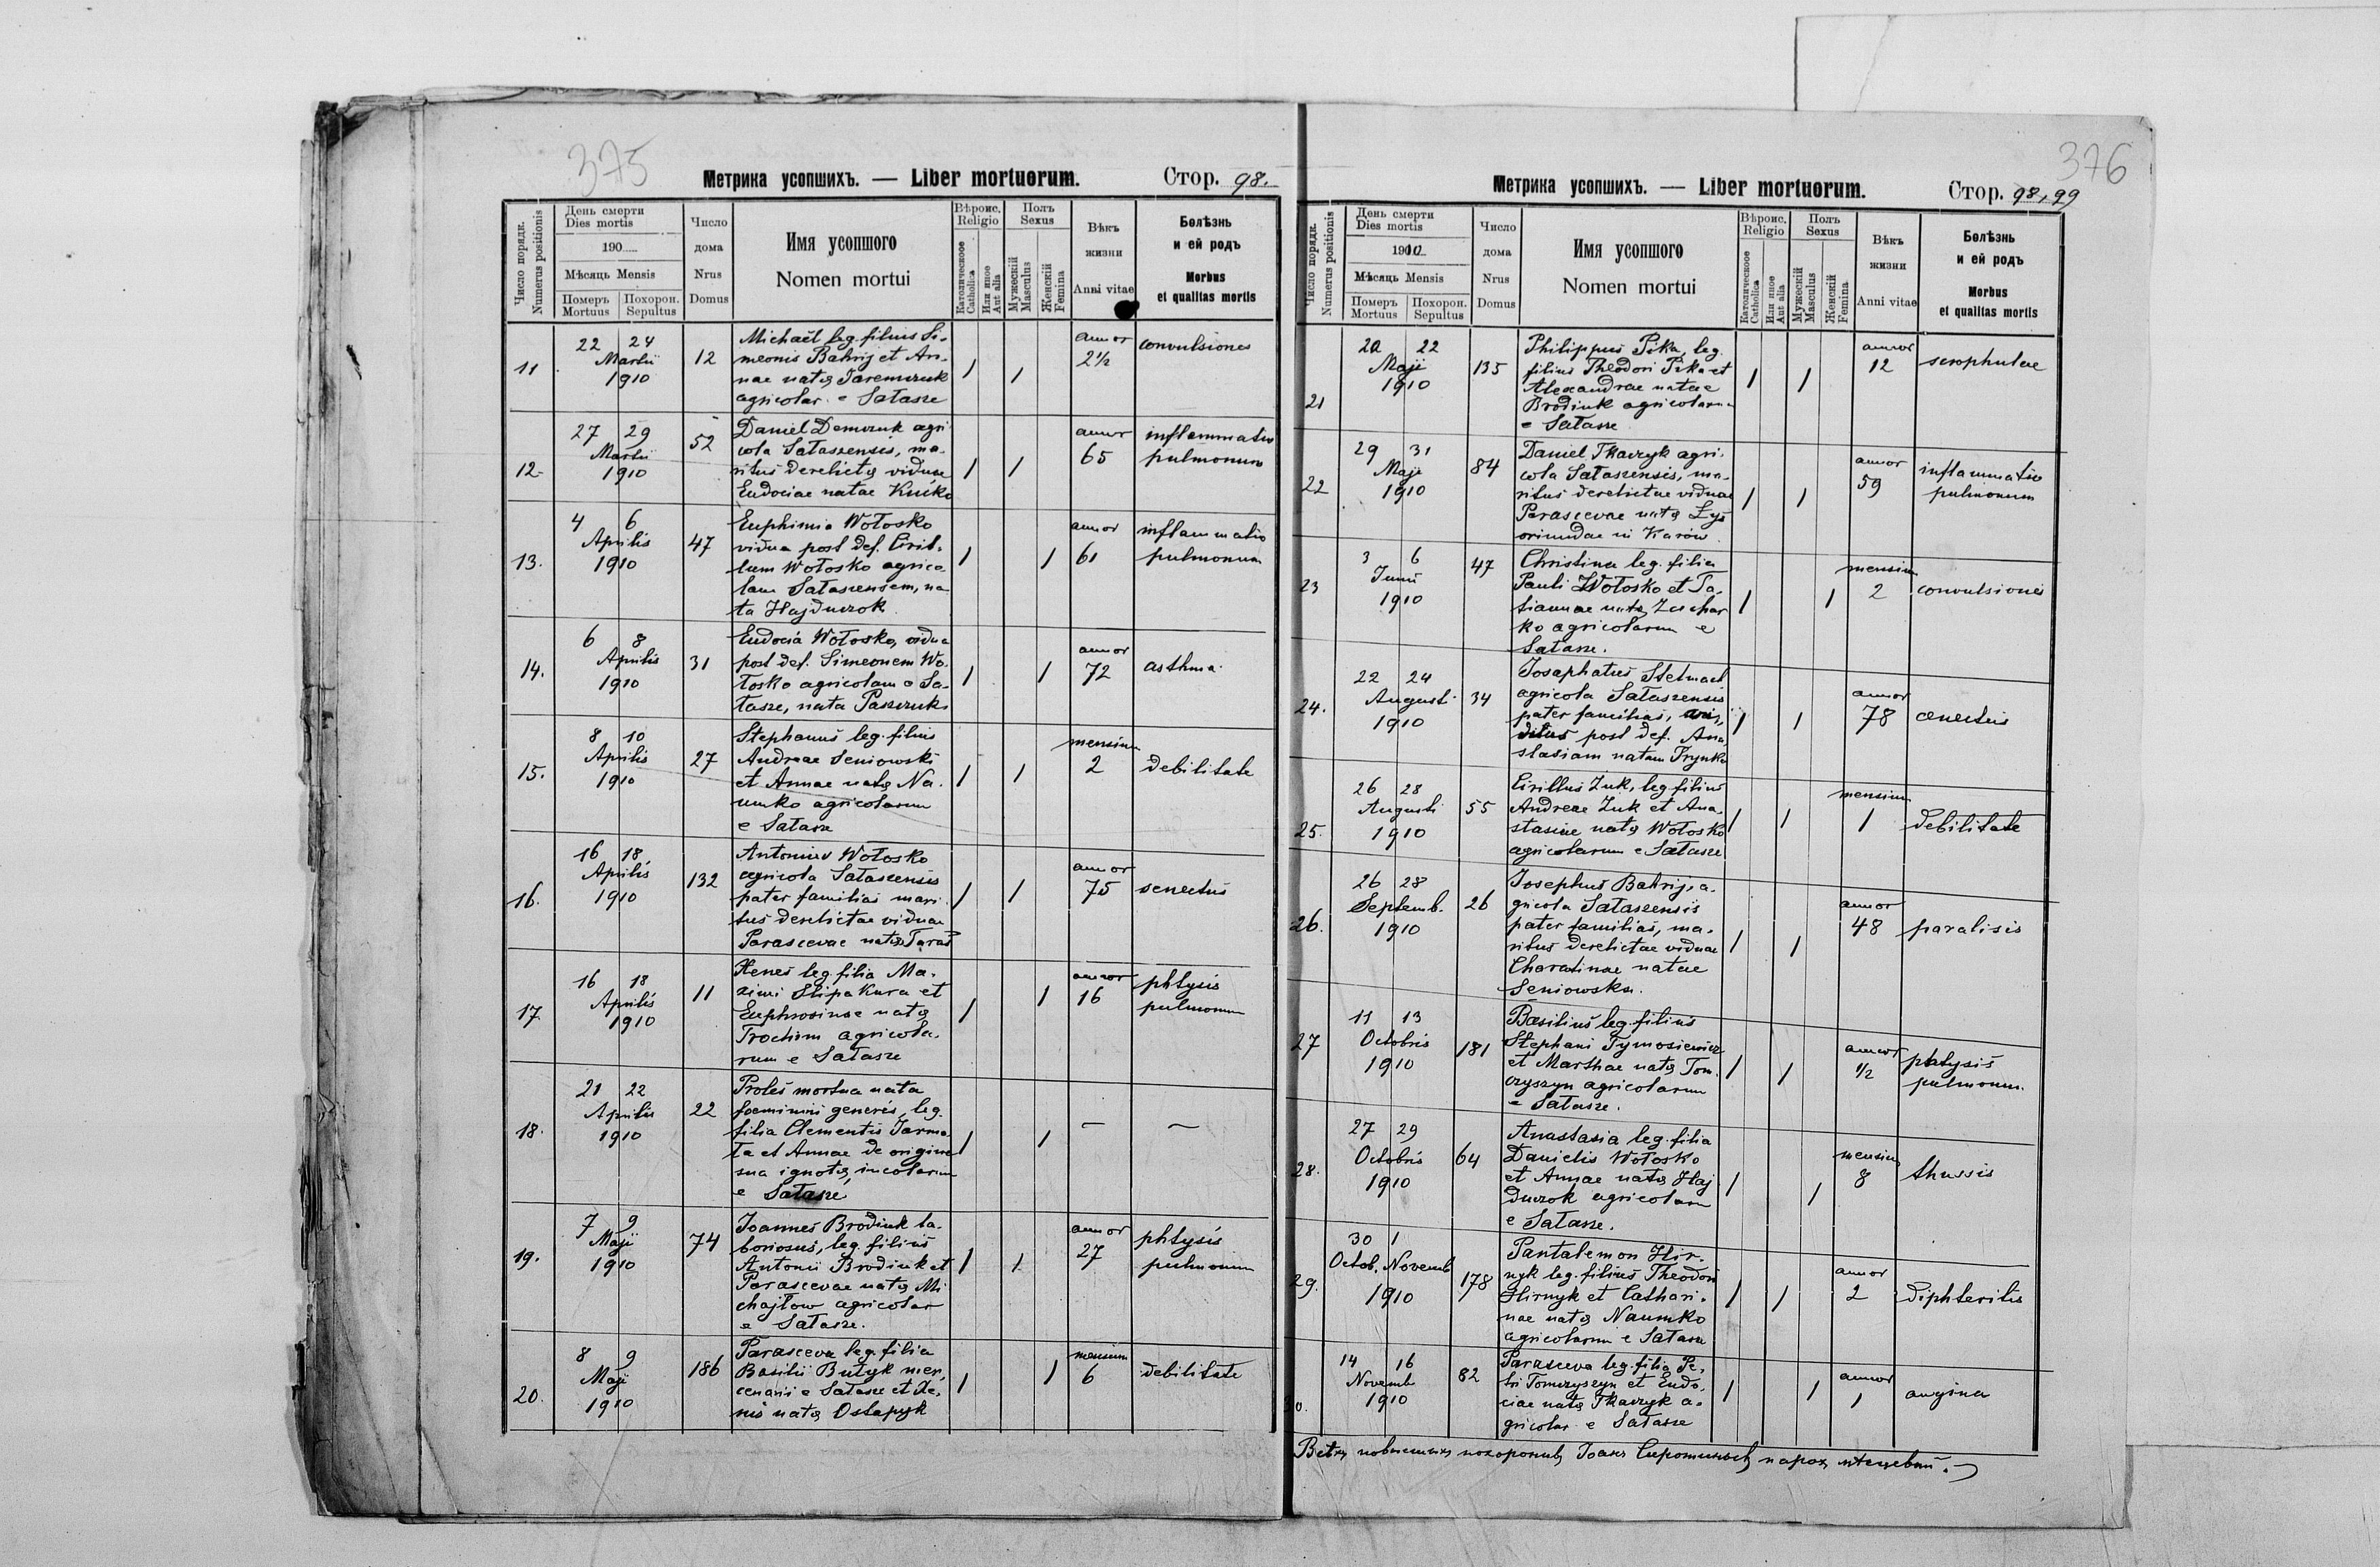 375
Метрика усопшихъ. — Liber mortuorum. Стор. 98.
Число порядк. Numerus positionis
День смерти
Dies mortis
190
Мѣсяць Mensis
Померъ Mortuus
Похорон. Sepultus
Число дома Nrus Domus
Имя усопшого
Nomen mortui
Вѣроис. Religio
Католическоое Catholica
Или иное Aut alia
Полъ Sexus
Мужескій Masculus
Женскій Femina
Вѣкъ жизни Anni vitae
Болѣзнь и ей родъ
Morbus et qualitas mortis
11 22 24 Martii 1910 12
Michaël leg. filius Si-
meonis Bahrij et An-
nae natę Jaremczuk
agricolar. e Sałasze
1 1 annor 2½ convulsiones
12. 27 29 Martii 1910 52
Daniel Demczuk agri
cola Sałaszensis, ma-
ritus derelictę viduae
Eudociae natae Kniko
1 1 annor 65 inflammatio pulmonum
13. 4 6 Aprilis 1910 47
Euphimia Wołosko
vidua post def. Ciril-
lum Wołosko agrico-
lam Sałaszensem, na-
ta Hajduczok
1 1 annor 61 inflammatio pulmonum
14. 6 8 Aprilis 1910 31
Eudocia Wołosko, vidua
post def. Simeonem Wo-
łosko agricolam e Sa-
łasze, nata Paszczuk
1 1 annor 72 asthma
15. 8 10 Aprilis 1910 27
Stephanus leg. filius
Andreae Seniowski
et Annae natę Na-
umko agricolarum
e Sałasze
1 1 mensium 2 debilitate
16. 16 18 Aprilis 1910 132
Antonius Wołosko
agricola Sałaszensis
pater familias mari
tus derelictae viduae
Parascevae natę Taras
1 1 annor 75 senectus
17 16 18 Aprilis 1910 11
Xenes leg. filia Ma-
ximi Slipakura et
Euphrosinae natę
Trochim agricola-
rum e Sałasze
1 1 annor 16 phtysis pulmonum
18. 21 22 Aprilis 1910 22
Proles mortua nata
foeminini generis, leg.
filia Clementis Jarmo-
ła et Annae de origine
sua ignotę, incolarum
e Sałasze
1 1 — —
19. 7 9 Maji 1910 74
Joannes Brodiuk la-
boriosus, leg. filius
Antonii Brodiuk et
Parascevae natę Mi
chajłow agricolar
e Sałasze.
1 1 annor 27 phtysis pulmonum
20. 8 9 Maji 1910 186
Parasceva leg. filia
Basilii Butyk mer-
cenarii e Sałasze et Xe-
nis natę Ostapyk
1 1 mensium 6 debilitate
376
Метрика усопшихъ. — Liber mortuorum. Стор. 98, 99
Число порядк. Numerus positionis
День смерти
Dies mortis
1910
Мѣсяць Mensis
Померъ Mortuus
Похорон. Sepultus
Число дома Nrus Domus
Имя усопшого
Nomen mortui
Вѣроис. Religio
Католическоое Catholica
Или иное Aut alia
Полъ Sexus
Мужескій Masculus
Женскій Femina
Вѣкъ жизни Anni vitae
Болѣзнь и ей родъ
Morbus et qualitas mortis
21 20 22 Maji 1910 135
Philippus Pika, leg.
filius Theodori Pika et
Alexandrae natae
Brodiuk agricolarum
e Sałasze
1 1 annor 12 scrophulae
22 29 31 Maji 1910 84
Daniel Tkaczyk agri-
cola Sałaszensis, ma-
ritus derelictae viduae
Parascevae natę Łys
oriundae in Karów
1 1 annor 59 inflammatio pulmonum
23 3 6 Junii 1910 47
Christina leg. filia
Pauli Wołosko et Ta-
tiannae natę Zuchar
ko agricolarum e
Sałasze.
1 1 mensium 2 convulsiones
24. 22 24 Augusti 1910 34
Josaphatus Stelmach
agricola Sałaszensis
pater familias,
post def. Ana-
stasiam natam Prynko
1 1 annor 78
25. 26 28 Augusti 1910 55
Cirillus Zuk, leg. filius
Andreae Zuk et Ana-
stasiae natę Wołosko
agricolarum e Sałasze
1 1 mensium 1 debilitate
26. 26 28 Septemb. 1910 26
Josephus Bahrij, a-
gricola Sałaszensis
pater familias, ma-
ritus derelictae viduae
Charatinae natae
Seniowska.
1 1 annor 48 paralisis
27 11 13 Octobris 1910 181
Basilius leg. filius
Stephani Tymosiewicz
et Marthae natę Tom-
czyszyn agricolarum
e Sałasze.
1 1 annor ½ phtysis pulmonum.
28. 27 29 Octobris 1910 64
Anastasia leg. filia
Danielis Wołosko
et Annae natę Haj
duczok agricolarum
e Sałasze.
1 1 mensium 8 thussis
29. 30 1 Octob. Novemb 1910 178
Pantalemon Hir-
nyk leg. filius Theodori
Hirnyk et Cathari-
nae natę Naumko
agricolarum e Sałasze
1 1 annor 2 diphteritis
30. 14 16 Novemb 1910 82
Parasceva leg. filia Pe-
tri Tomczyszyn et Eudo-
ciae natę Tkaczyk a-
gricolar e Sałasze
1 1 annor 1 angina
повысшихъ похоронивъ Іоанъ парох мѣсцевый.